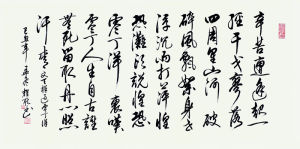 辛苦遭逢起一
經干戈寥落
四周星山河破
碎風飄絮身世
浮沉雨打萍惶
恐灘頭說惶恐
零丁洋裏嘆
零丁人生自古誰
無死留取丹心照
汗青 文天祥過零丁洋